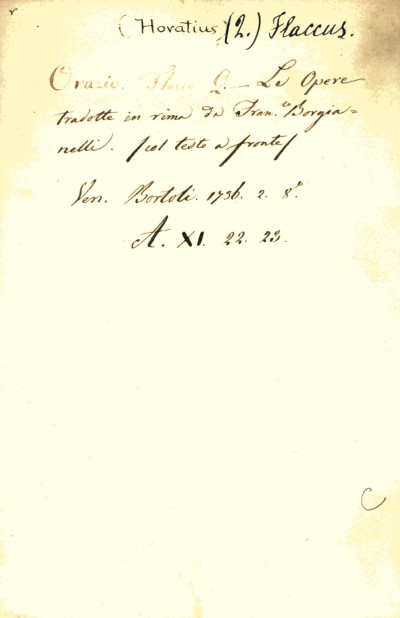 (Horatius (Q.) Flaccus.
Orazio. Flacc. Q. — Le Opere
tradotte in rima da Fran.co Borgia=
nelli. (col testo a fronte)
Ven. Bortoli. 1736. 2. 8.º
A. XI. 22. 23.
C